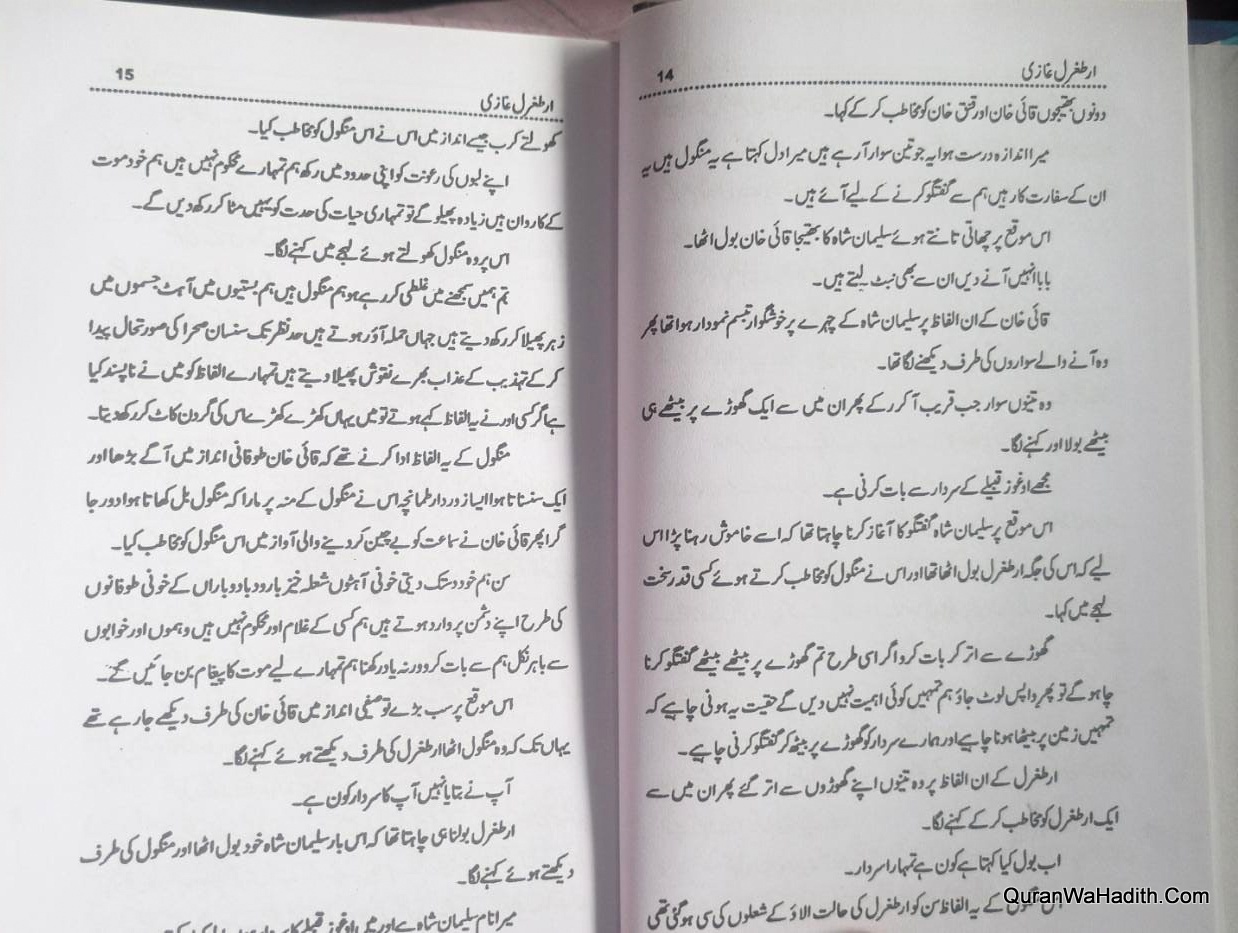 ارطغرل غازی
14
دونوں بھتیجوں قائی خان اور قتق خان کو مخاطب کر کے کہا۔
میرا اندازہ درست ہوا یہ جو تین سوار آ رہے ہیں میرا دل کہتا ہے یہ منگول ہیں یہ
ان کے سفارت کار ہیں ہم سے گفتگو کرنے کے لیے آئے ہیں۔
اس موقع پر چھاتی تانتے ہوئے سلیمان شاہ کا بھتیجا قائی خان بول اٹھا۔
بابا انہیں آنے دیں ان سے بھی نبٹ لیتے ہیں۔
قائی خان کے ان الفاظ پر سلیمان شاہ کے چہرے پر خوشگوار تبسم نمودار ہوا تھا پھر
وہ آنے والے سواروں کی طرف دیکھنے لگا تھا۔
وہ تینوں سوار جب قریب آ کر رکے پھر ان میں سے ایک گھوڑے پر بیٹھے ہی
بیٹھے بولا اور کہنے لگا۔
مجھے اوغوز قبیلے کے سردار سے بات کرنی ہے۔
اس موقع پر سلیمان شاہ گفتگو کا آغاز کرنا چاہتا تھا کہ اسے خاموش رہنا پڑا اس
لیے کہ اس کی جگہ ارطغرل بول اٹھا تھا اور اس نے منگول کو مخاطب کرتے ہوئے کسی قدر سخت
لہجے میں کہا۔
گھوڑے سے اتر کر بات کرو اگر اسی طرح تم گھوڑے پر بیٹھے بیٹھے گفتگو کرنا
چاہو گے تو پھر واپس لوٹ جاؤ ہم تمہیں کوئی اہمیت نہیں دیں گے حقیقت یہ ہونی چاہیے کہ
تمہیں زمین پر بیٹھا ہونا چاہیے اور ہمارے سردار کو گھوڑے پر بیٹھ کر گفتگو کرنی چاہیے۔
ارطغرل کے ان الفاظ پر وہ تینوں اپنے گھوڑوں سے اتر گئے پھر ان میں سے
ایک ارطغرل کو مخاطب کر کے کہنے لگا۔
اب بول کیا کہتا ہے کون ہے تمہارا سردار۔
اس منگول کے یہ الفاظ سن کو ارطغرل کی حالت الاؤ کے شعلوں کی سی ہو گئی تھی
15
ارطغرل غازی
کھولتے کرب جیسے انداز میں اس نے اس منگول کو مخاطب کیا۔
اپنے لبوں کی رعونت کو اپنی حدود میں رکھ ہم تمہارے محکوم نہیں ہیں ہم خود موت
کے کاروان ہیں زیادہ پھیلو گے تو تمہاری حیات کی حدت کو یہیں مٹا کر رکھ دیں گے۔
اس پر وہ منگول کھولتے ہوئے لہجے میں کہنے لگا۔
تم ہمیں سمجھنے میں غلطی کر رہے ہو ہم منگول ہیں ہم بستیوں میں آہٹ جسموں میں
زہر پھیلا کر رکھ دیتے ہیں جہاں حملہ آؤر ہوتے ہیں حد نظر تک سنسان صحرا کی صورتحال پیدا
کر کے تہذیب کے عذاب بھرے نقوش پھیلا دیتے ہیں تمہارے الفاظ کو میں نے ناپسند کیا
ہے اگر کسی اور نے یہ الفاظ کہے ہوتے تو میں یہاں کھڑے کھڑے اس کی گردن کاٹ کر رکھ دیتا۔
منگول کے یہ الفاظ ادا کرنے تھے کہ قائی خان طوفانی انداز میں آگے بڑھا اور
ایک سنسناتا ہوا ایسا زوردار طمانچہ اس نے منگول کے منہ پر مارا کہ منگول بل کھاتا ہوا دور جا
گرا پھر قائی خان نے سماعت کو بے چین کر دینے والی آواز میں اس منگول کو مخاطب کیا۔
سن ہم خود دستک دیتی خونی آہٹوں شعلہ خیز بارود باد و باراں کے خونی طوفانوں
کی طرح اپنے دشمن پر وارد ہوتے ہیں ہم کسی کے غلام اور محکوم نہیں ہیں وہموں اور خوابوں
سے باہر نکل ہم سے بات کرو ورنہ یاد رکھنا ہم تمہارے لیے موت کا پیغام بن جائیں گے۔
اس موقع پر سب بڑے توصیفی انداز میں قائی خان کی طرف دیکھے جا رہے تھے
یہاں تک کہ وہ منگول اٹھا ارطغرل کی طرف دیکھتے ہوئے کہنے لگا۔
آپ نے بتایا نہیں آپ کا سردار کون ہے۔
ارطغرل بولنا ہی چاہتا تھا کہ اس بار سلیمان شاہ خود بول اٹھا اور منگول کی طرف
دیکھتے ہوئے کہنے لگا۔
میرا نام سلیمان شاہ ہے اور میں اوغوز قبیلے کا سردار
QuranWaHadith.Com